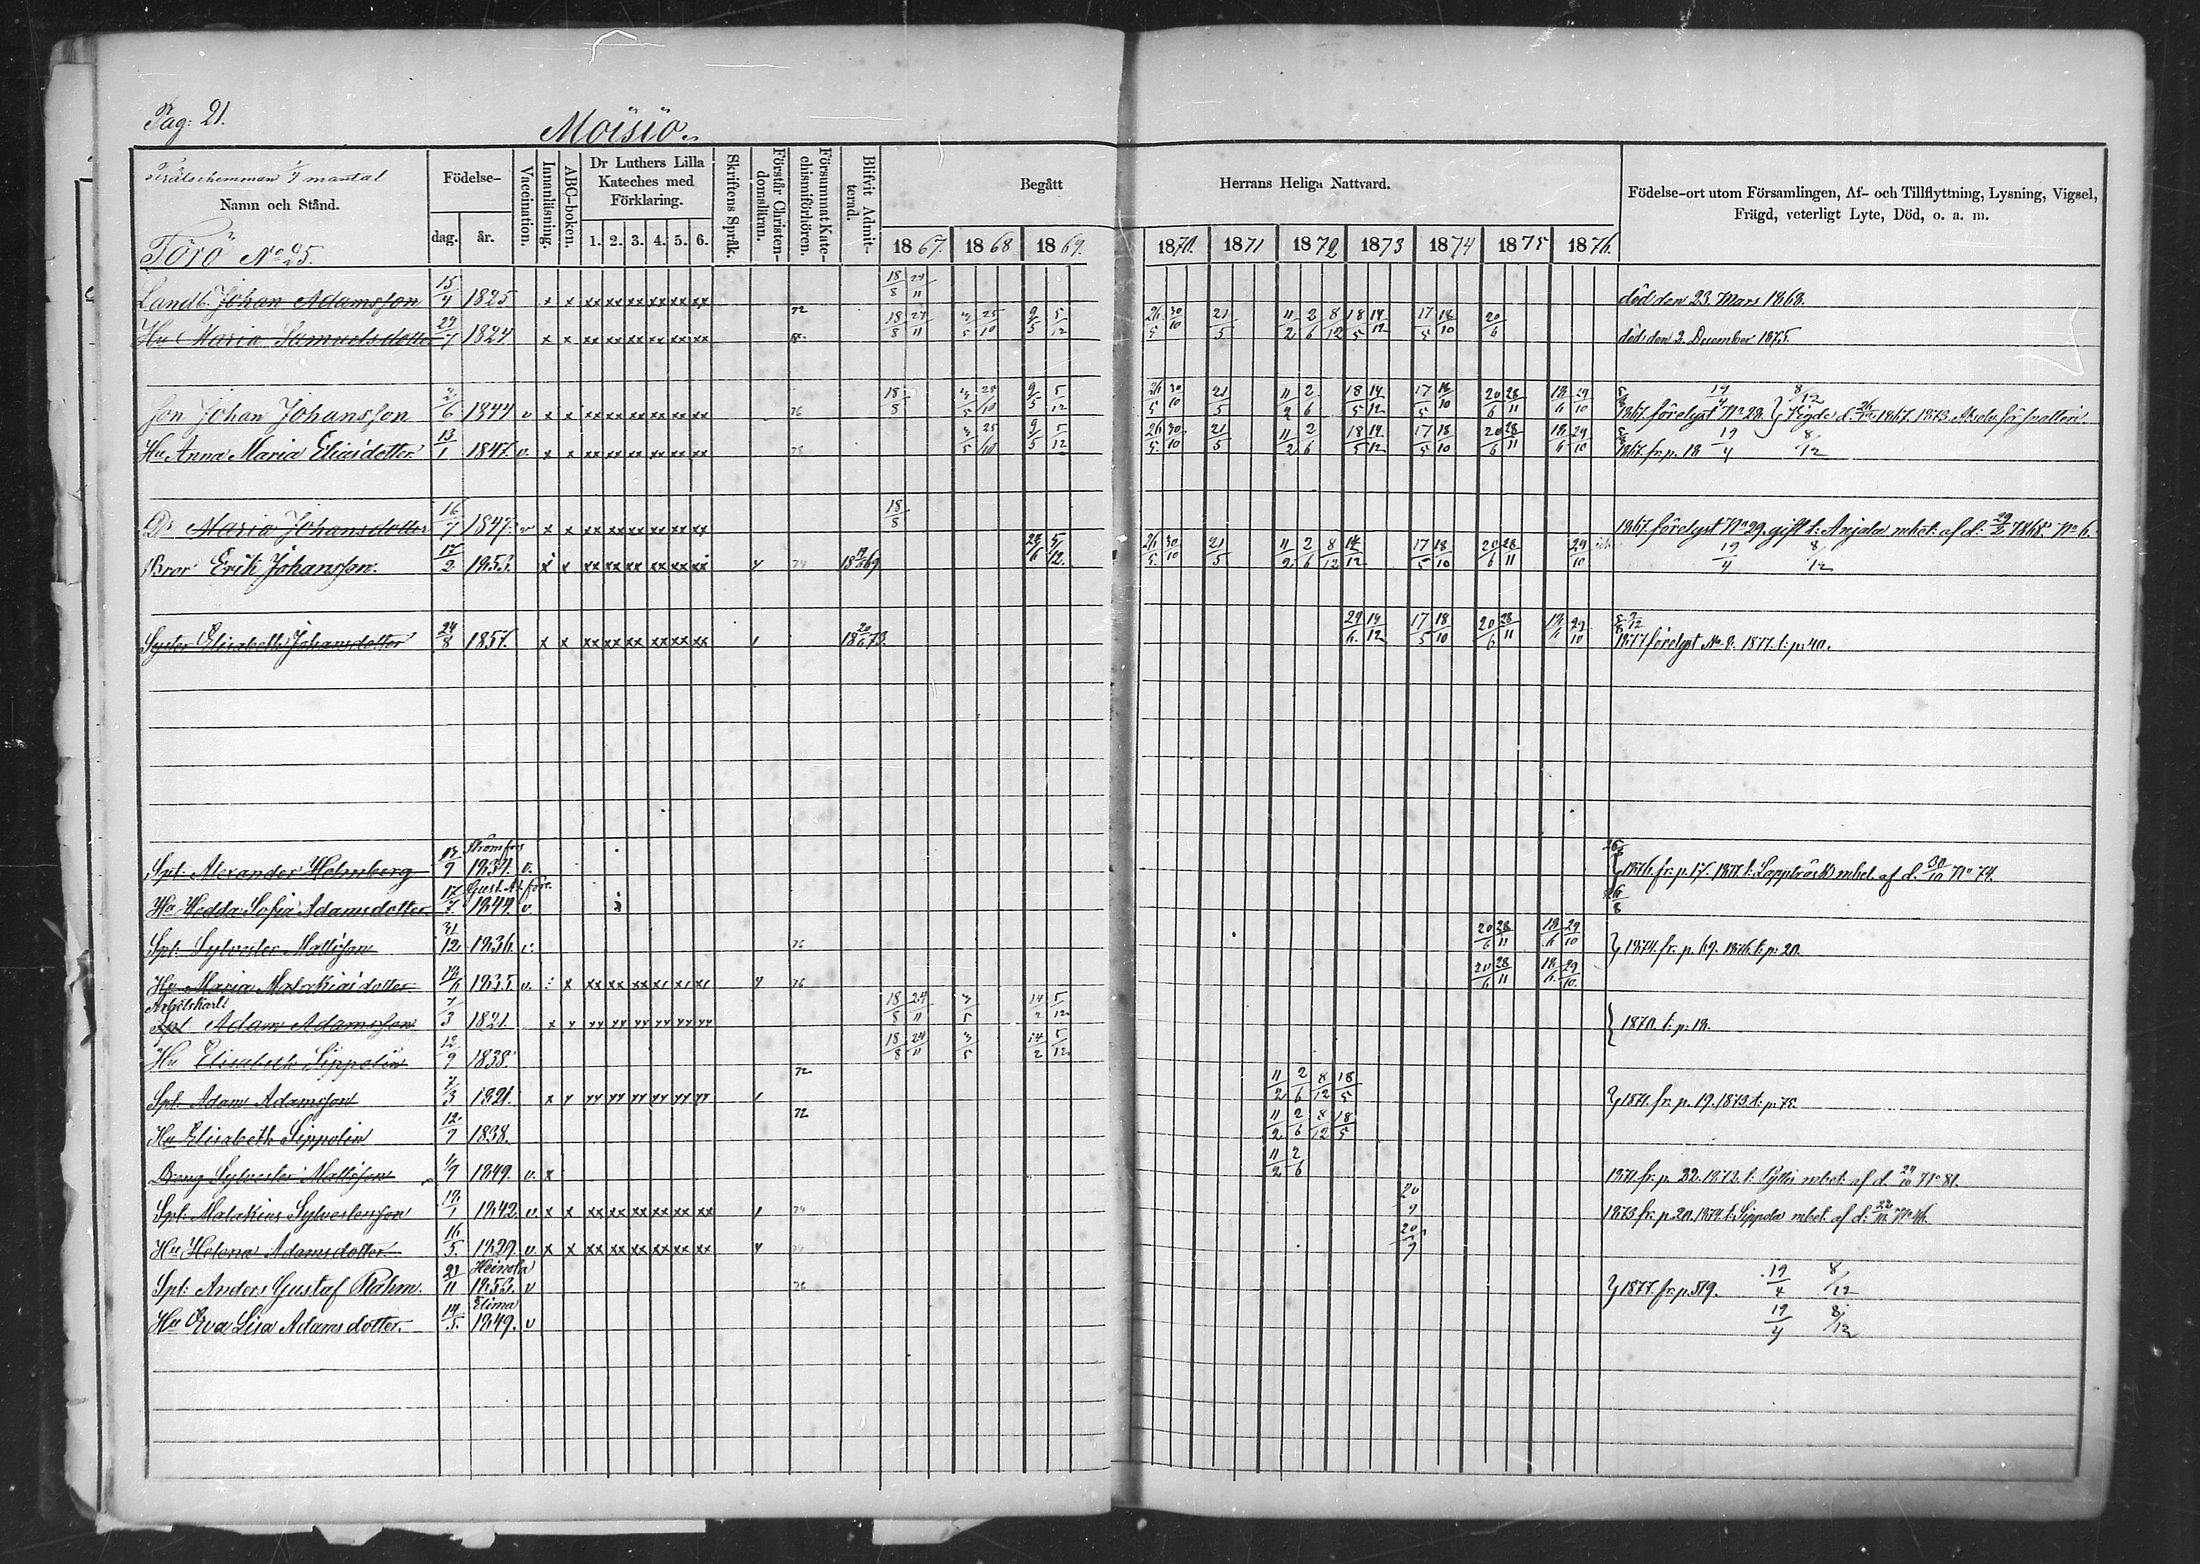 Pag: 21.
Moisio
Frälsehemman 1/4 mantal
Namn och Stånd.
Födelse-
dag. år.
Vaccination.
Innanläsning.
ABC-boken.
Dr Luthers Lilla Kateches med Förklaring.
1. 2. 3. 4. 5. 6.
Skriftens Språk.
Förstår Christendomsläran.
Försummat Katechismiförhören.
Blifvit Admitterad.
Begått Herrans Heliga Nattvard.
1867. 1868 1869. 1870. 1871 1872 1873 1874 1875 1876.
Födelse-ort utom Församlingen, Af- och Tillflyttning, Lysning, Vigsel,
Frägd, veterligt Lyte, Död, o. a. m.
Törö No 25.
Landb. Johan Adamsson 15/4 1825 x x xx xx xx xx xx xx 18/8 24/11 död den 23. Mars 1868.
Hu Maria Samuelsdotter 29/7 1824 x x xx xx xx xx xx xx 72 18/8 24/11 3/5 25/10 9/5 5/12 26/5 30/10 21/5 11/2 2/6 8/12 18/5 14/12 17/5 18/10 20/6 död den 2. December 1875.
Son Johan Johansson 2/6 1844 v x x xx xx xx xx xx xx 76 18/8 3/5 25/10 9/5 5/12 26/5 30/10 21/5 11/2 2/6 18/5 14/12 17/5 18/10 20/6 28/11 18/6 29/10 19/4 8/12 1867. förelyst No 28.
Hu Anna Maria Eliasdotter 13/1 1847. v. x x xx xx xx xx xx xx 76 3/5 25/10 9/5 5/12 26/5 30/10 21/5 11/2 2/6 18/5 14/12 17/5 18/10 20/6 28/11 18/6 29/10 1867. fr. p. 18 19/4 8/12
Dr Maria Johansdotter 16/7 1847. v x x xx xx xx xx xx xx 18/8 1867. förelyst No 29. gift t: Anjala mbet: af d: 29/2 1868. No 6.
Bror Erik Johansson. 17/2 1853. x x xx xx xx xx xx xx 1869 24/6 5/12. 26/5 30/10 21/5 11/2 2/6 8/12 14/12 17/5 18/10 20/6 28/11 29/10 19/4 8/12
Syster Elisabeth Johansdotter 24/8 1857. x x xx xx xx xx xx xx 20/6 1873. 29/6 14/12 17/5 18/10 20/6 28/11 18/6 29/10 1877 förelyst No 8. 1877. t: p: 40.
Strömfors
Spt: Alexander Holmberg 9 1834. v. 1876. fr. p. 17. 1877. t: Lappträsk mbet. af d. 30/10 No 74.
Hu Hedda Sofia Adamsdotter 17/7 1844. v.
Spt. Sylvester Mattsson 31/12 1836. v. 76 20/6 28/11 18/6 29/10 } 1874. fr. p. 69. 1876. t: p: 20.
Hu Maria Malakiasdotter 18/6 1835 v. x xx xx xx xx xx xx 76 20/6 28/11 18/6 29/10.
Arbetskarl
Adam Adamsson 7/3 1821. 18/8 24/11 3/5 14/2 5/12 } 1870. t: p: 18.
Hu Elisabeth Sippolin 12/9 1838. 18/8 24/11 3/5 14/2 5/12
Spt. Adam Adamsson 7/3 1821. 72 11/2 2/6 8/12 18/5 } 1871. fr. p. 19. 1873 t: p: 78.
Hu Elisabeth Sippolin 12/9 1838. 72 11/2 2/6 8/12 18/5
Dräng Sylvester Mattsson 1849. v. x 11/2 2/6 1871 fr. p. 22. 1872. t: Pyttis mbet: af d. 24/10 No 81.
Spt. Malakias Sylvestersson 1842. v. x x xx xx xx xx xx xx 74 20/9 1873 fr. p. 20. 1874. t: Sippola mbet. af d: 22/10 No 46.
Hu Helena Adamsdotter 16/5 1829. v x x xx xx xx xx xx xx 20/9
Heinola
Spt. Anders Gustaf Rahm. 21/11 1853. v 76 } 1877. fr. p. 519. 19/4 8/12
Elima
Hu Eva Lisa Adamsdotter. 14/5. 1849. v 19/4 8/12